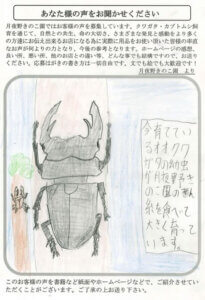 あなた様の声をお聞かせください
月夜野きのこ園ではお客様の声を募集しています。クワガタ・カブトムシ飼
育を通じて、自然との共生、命の大切さ、さまざまな発見と感動をより多く
の方達にお伝え出来るお店になる為に実際に用品をお使い頂いた皆様の率直
なお声が何よりの力となり、今後の参考となります。ホームページの感想、
良い所、悪い所、他のお店との違い等、どんな事でも結構ですので、お送り
ください。応募はがきの書き方は一切自由です。文でも絵でも大歓迎です！
月夜野きのこ園 より
今育てている
オオクワ
ガタの幼虫
が月夜野
のきのこ園の菌
糸を食べて
大きく育って
います。
このお客様の声を書籍など紙面やホームページなどで、ご紹介させてい
ただくことがございます。ご了承の上お送り下さい。